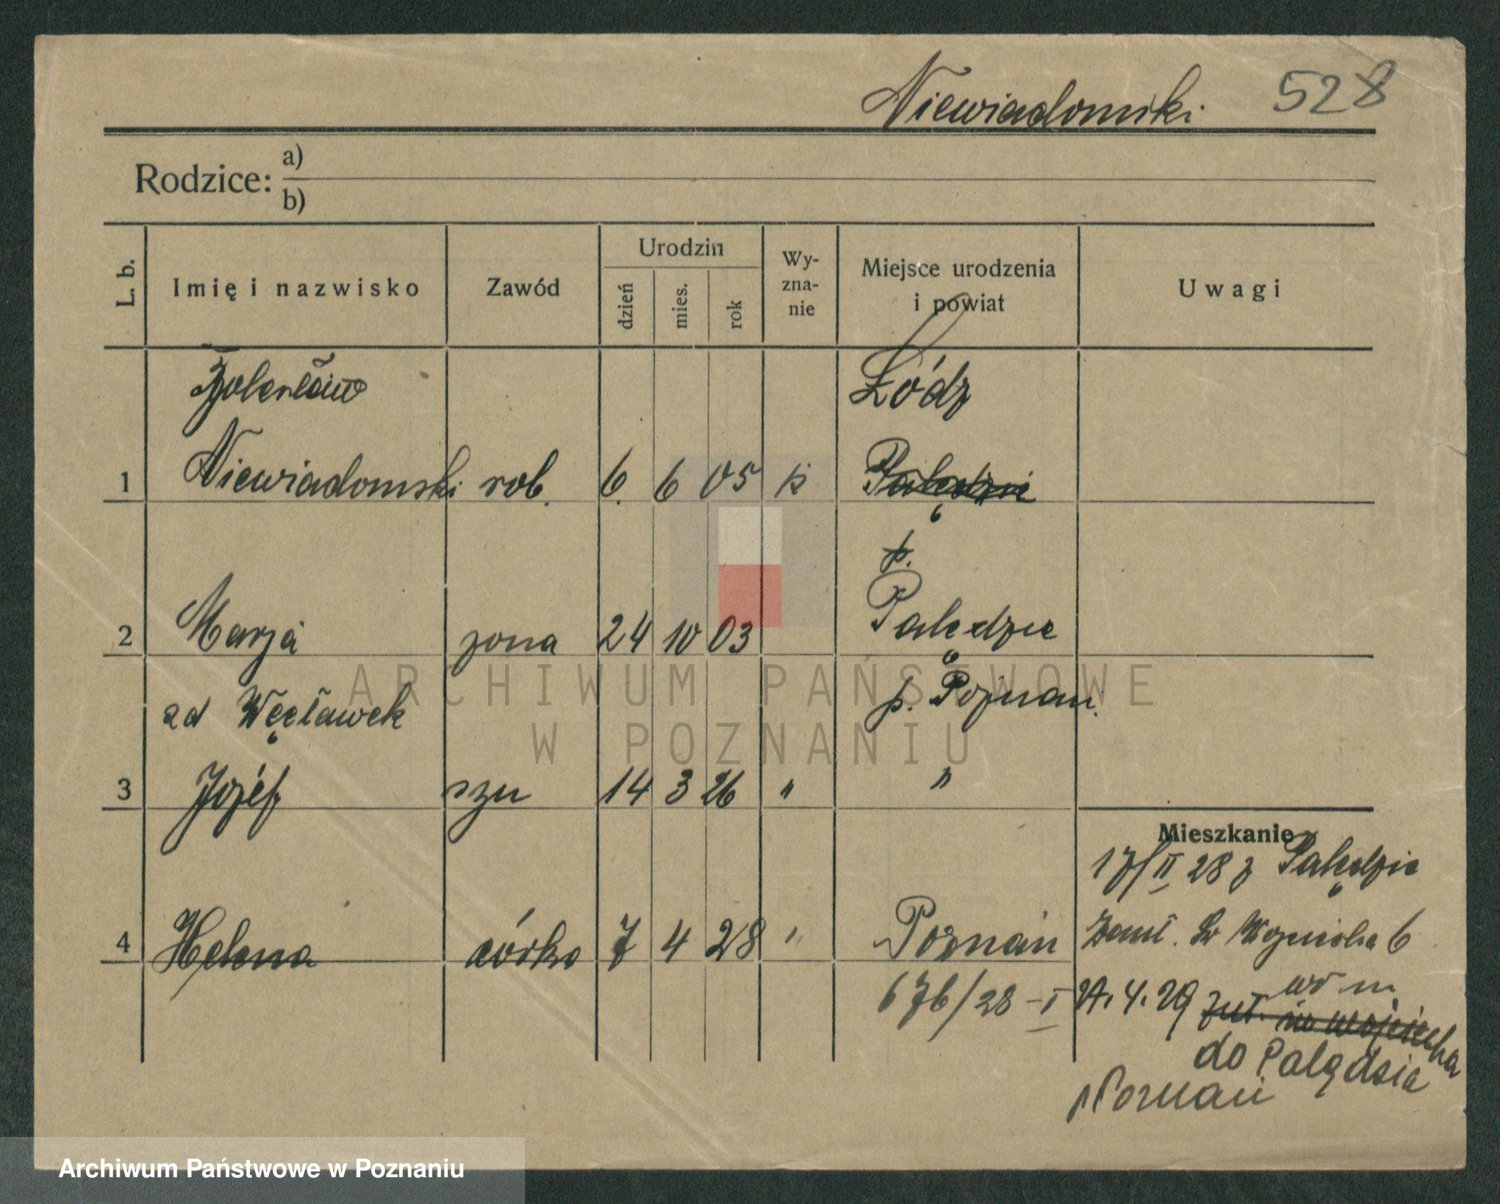 Niewiadomski 528
Rodzice: a)
b)
L. b. Imię i nazwisko Zawód Urodzin dzień mies. rok Wy-zna-nie Miejsce urodzenia i powiat Uwagi
Bolesław Łódź
1 Niewiadomski rob. 6. 6 05 k Palędzie
p.
2 Marja żona 24 10 03 Palędzie
zd Węcławek p. Poznań.
3 Józef syn 14 3 26 " "
Mieszkanie
17/II 28 z Palędzie
4 Helena córka 7 4 28 " Poznań 6
676/28 - I 27.4.29
do Palędzia
Poznań
ARCHIWUM PAŃSTWOWE
W POZNANIU
Archiwum Państwowe w Poznaniu